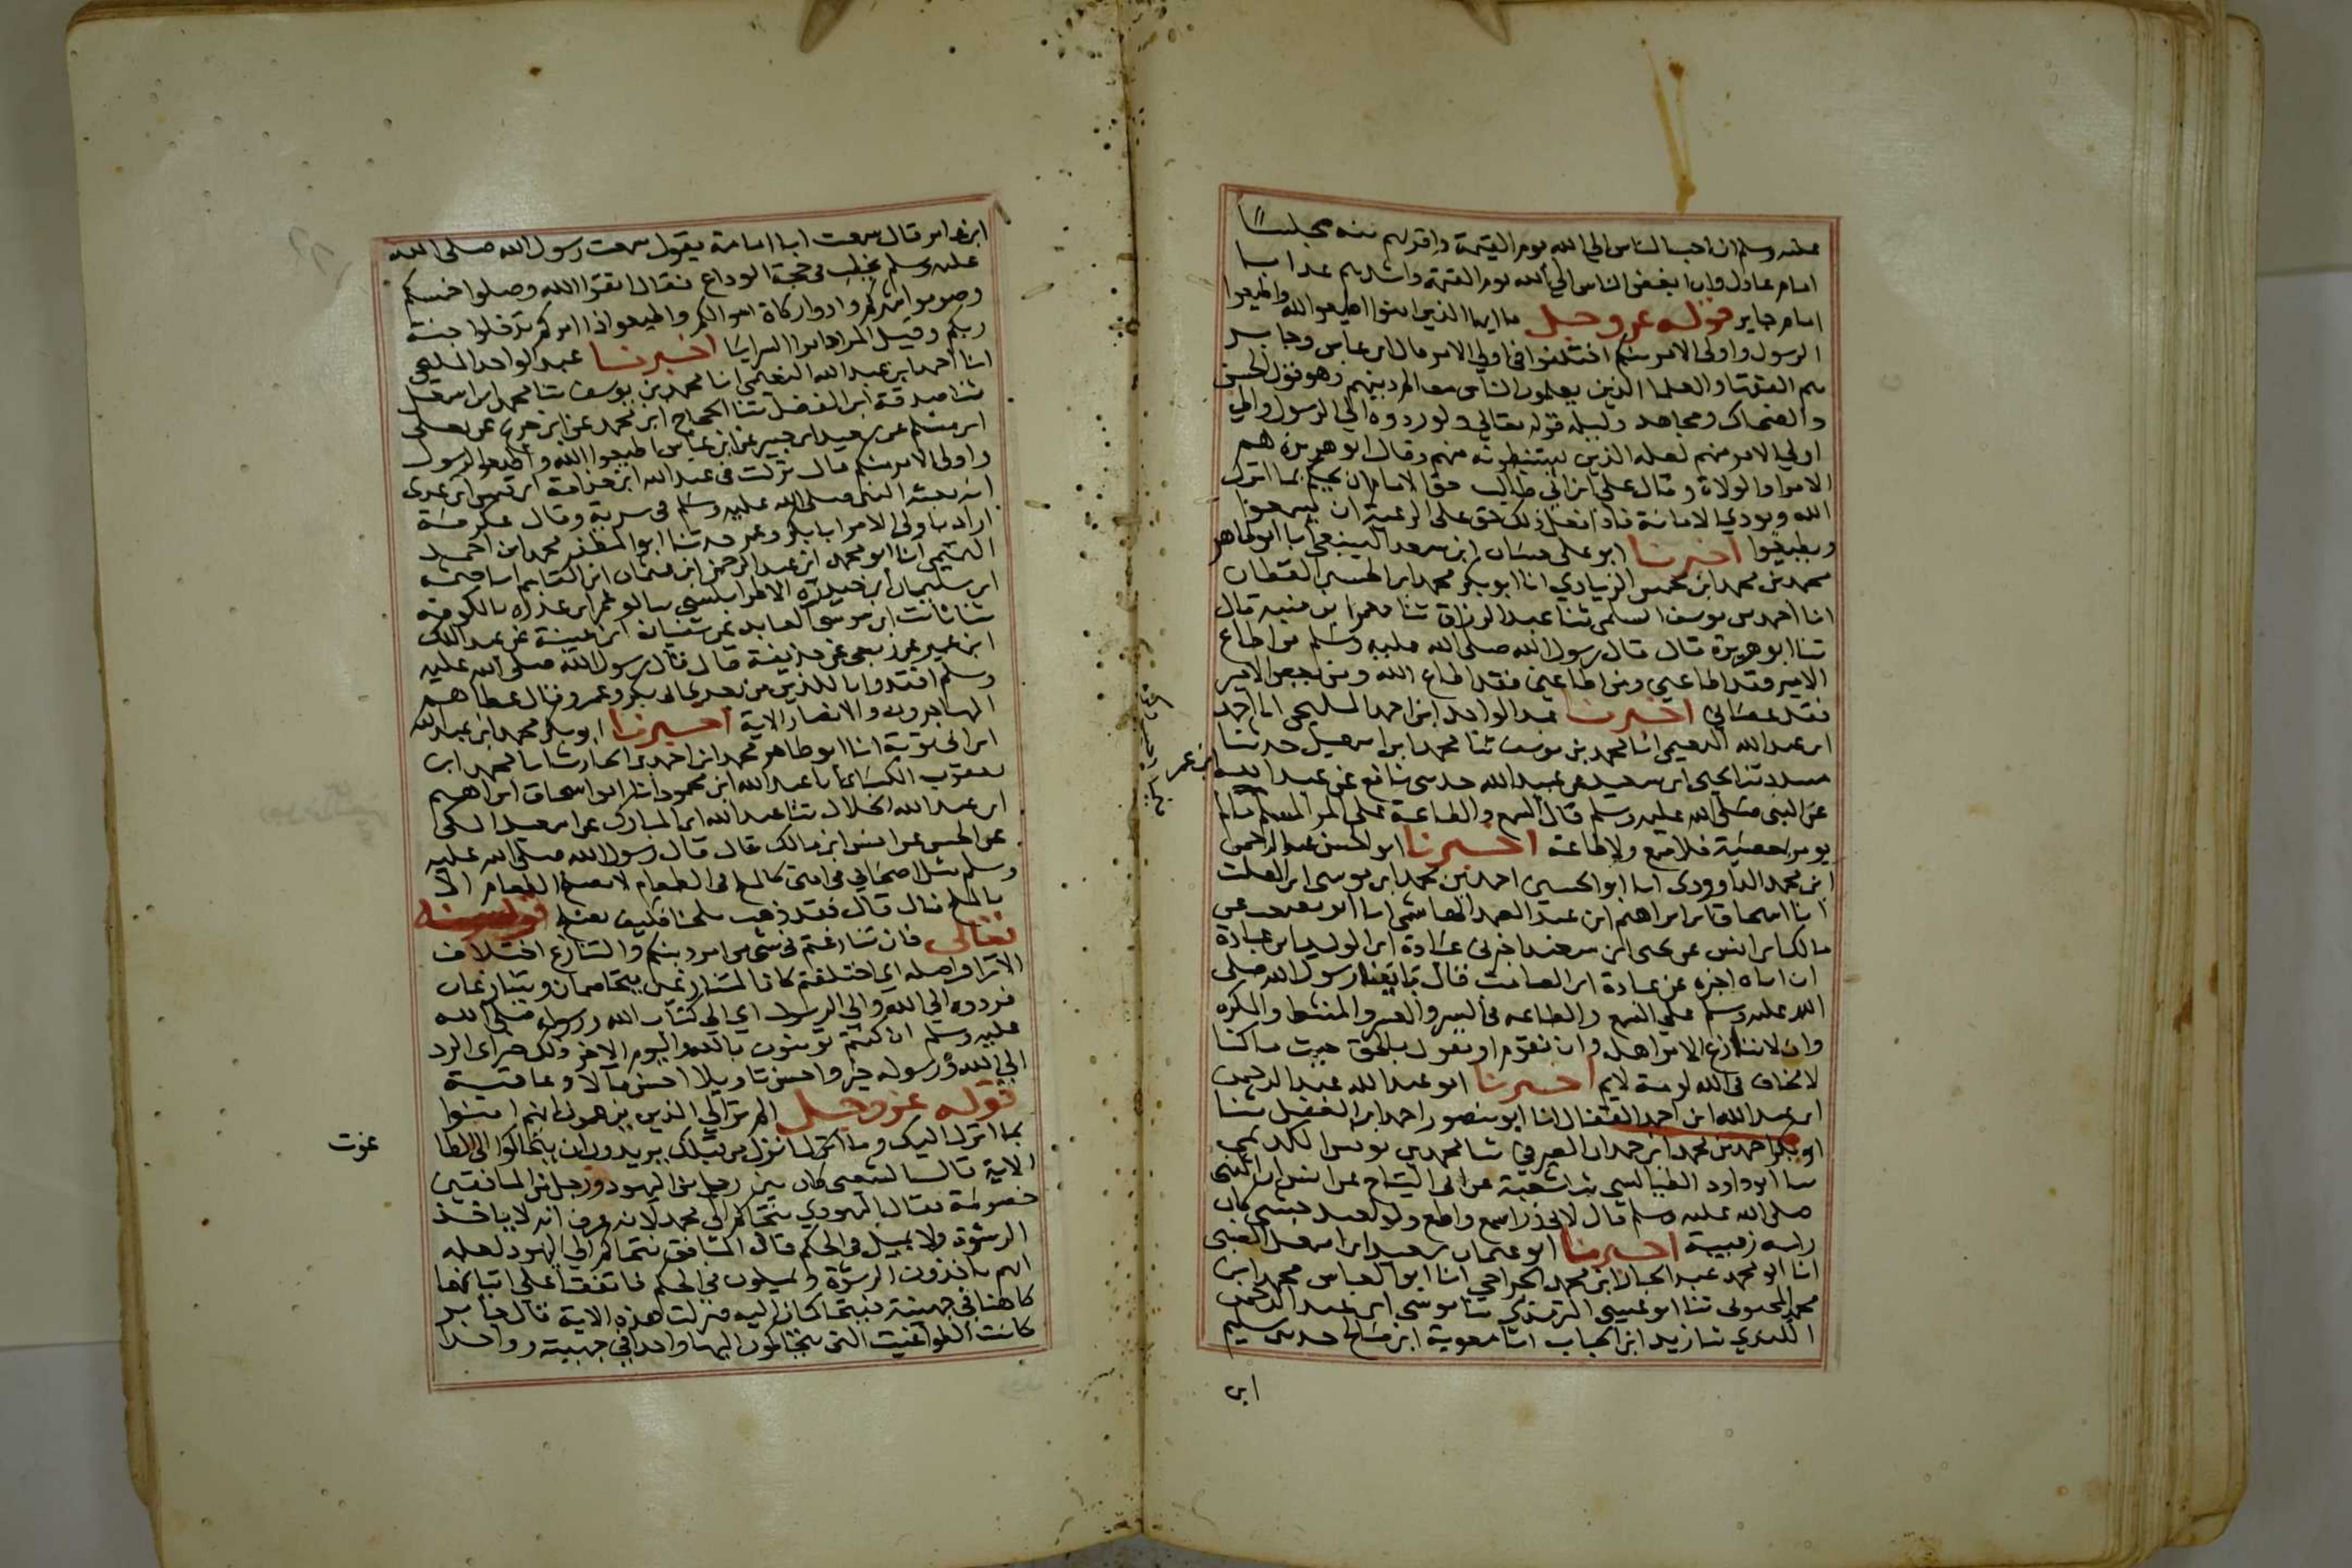 عليه وسلم ان احب الناس الي الله يوم القيمة واقربهم منه مجلسًا
امام عادل وان ابغض الناس الي الله يوم القيمة واشدهم عذابا
امام جاير قوله عز وجل يا ايها الذين امنوا اطيعوا الله واطيعوا
الرسول واولى الامر منكم اختلفوا في اولي الامر قال ابن عباس وجابر
هم الفقها والعلما الذين يعلمون الناس معالم دينهم وهو قول الحسن
والضحاك ومجاهد دليله قوله تعالي ولو ردوه الي الرسول والي
اولي الامر منهم لعلمه الذين يستنبطونه منهم وقال ابو هريرة هم
الامرا والولاة وقال علي ابن ابي طالب حق الامام ان يحكم بما انزل
الله ويودي الامانة فاذا فعل ذلك حق على الرعية ان يسمعوا
ويطيعوا اخبرنا ابو على حسان ابن سعد المنيعي انا ابو طاهر
محمد بن محمد ابن محمس الزيادي انا ابو بكر محمد ابن الحسين القطان
انا احمد بن يوسف السلمي ثنا عبد الرزاق ثنا معمر ابن منبه قال
ثنا ابو هريرة قال قال رسول الله صلى الله عليه وسلم من اطاع
الامير فقد اطاعني ومن اطاعني فقد اطاع الله ومن يعص الامير
فقد عصاني اخبرنا عبد الواحد ابن احمد المليحي انا احمد
ابن عبد الله النعيمي انا محمد بن يوسف ثنا محمد ابن اسمعيل حدثنا
مسدد ثنا يحيى ابن سعيد عن عبد الله حدثني نافع عن عبد الله ابن عمر
عن النبي صلى الله عليه وسلم قال السمع والطاعة على المرء المسلم مالم
يومر بمعصية فلا سمع ولا طاعة اخبرنا ابو الحسن عبد الرحمن
ابن محمد الداوودي انا ابو الحسين احمد بن محمد ابن موسى ابن الصلت
انا ابو اسحاق ابراهيم ابن عبد الصمد الهاشمي انا ابو مصعب عن
مالك ابن انس عن يحيى ابن سعيد اخبرني عبادة ابن الوليد ابن عبادة
ان اباه اخبره عن عبادة ابن الصامت قال بايعنا رسول الله صلى
الله عليه وسلم علي السمع والطاعه في اليسر والعسر والمنشط والمكره
وان لا ننازع الامر اهله وان نقوم او نقول بالحق حيث ما كنا
لا نخاف في الله لومة لايم اخبرنا ابو عبد الله عبد الرحمن
ابن عبد الله ابن احمد القفال انا ابو منصور احمد ابن الفضل ثنا
ابو بكر احمد بن محمد ابن حمدان الصيرفي ثنا محمد بن يونس الكديمي
ثنا ابو داود الطيالسي ثنا شعبة عن ابي التياح عن انس ان النبي
صلى الله عليه وسلم قال لابي ذر اسمع واطع ولو لعبد حبشي كان
راسه زبيبة اخبرنا ابو عثمان سعيد ابن اسمعيل الضبي
انا ابو محمد عبد الجبار ابن محمد الجراحي انا ابو العباس محمد ابن
محمد المحبوبي ثنا ابو عيسى الترمذي ثنا موسى ابن عبد الرحمن
الكندي ثنا زيد ابن الحباب انا معوية ابن صالح حدثني سليم
ابن
ابن عامر قال سمعت ابا امامة يقول سمعت رسول الله صلى الله
عليه وسلم يخطب في حجة الوداع فقال اتقوا الله وصلوا خمسكم
وصوموا شهركم وادوا زكاة اموالكم واطيعوا ذا امركم تدخلوا جنة
ربكم وقيل المراد امرا السرايا اخبرنا عبد الواحد المليحي
انا احمد ابن عبد الله النعيمي انا محمد بن يوسف ثنا محمد ابن اسمعيل
ثنا صدقة ابن الفضل ثنا الحجاج ابن محمد عن ابن جريج عن يعلى
ابن مسلم عن سعيد ابن جبير عن ابن عباس اطيعوا الله واطيعوا الرسول
واولى الامر منكم قال نزلت في عبد الله ابن حذافة ابن قيس ابن عدي
اذ بعثه النبي صلى الله عليه وسلم في سرية وقال عكرمة
اراد باولى الامر ابا بكر وعمر حدثنا ابو المظفر محمد ابن احمد
التيمي انا ابو محمد ابن عبد الرحمن ابن عثمان ابن القاسم انا خيثمة
ابن سليمان ابن حيدرة الاطرابلسي ثنا ابو عمر ابن عذره بالكوفة
ثنا ثابت ابن موسى العابد عن سفيان ابن عيينة عن عبد الملك
ابن عمير عن ربعي عن حذيفة قال قال رسول الله صلى الله عليه
وسلم اقتدوا باللذين من بعدي ابي بكر وعمر وقال عطا هم
المهاجرون والانصار الاية اخبرنا ابو بكر محمد ابن عبد الله
ابن ابي توبة انا ابو طاهر محمد ابن احمد ابن الحارث انا محمد ابن
يعقوب الكسائي انا عبد الله ابن محمود انا ابو اسحاق ابراهيم
ابن عبد الله الخلال ثنا عبد الله ابن المبارك عن اسمعيل المكي
عن الحسن عن انس ابن مالك قال قال رسول الله صلى الله عليه
وسلم مثل اصحابي في امتي كالملح في الطعام لا يصلح الطعام الا
بالملح قال قال فقد ذهب ملحنا فكيف نصلح قوله
تعالى فان تنازعتم في شي من امر دينكم والتنازع اختلاف
الارا واصله اي اختلفتم كان المتنازعين يتخاصمان ويتنازعان
فردوه الي الله والي الرسول اي الي كتاب الله ورسوله صلى الله
عليه وسلم ان كنتم تومنون بالله واليوم الاخر ذلك خير اي الرد
الي الله ورسوله خير واحسن تاويلا احسن مآلا وعاقبة
قوله عز وجل الم تر الي الذين يزعمون انهم امنوا
بما انزل اليك وما انزل من قبلك يريدون ان يتحاكموا الى الطا
غوت
الاية قال الشعبي كان بين رجل من اليهود ورجل من المنافقين
خصومة فقال اليهودي نتحاكم الي محمد لانه عرف انه لا ياخذ
الرشوة ولا يميل في الحكم قال المنافق نتحاكم الي اليهود لعلمه
انهم ياخذون الرشوة ويميلون في الحكم فاتفقا على ان ياتيا
كاهنا في جهينة فيتحاكمان اليه فنزلت هذه الاية قال جابر
كانت الطواغيت التي يتحاكمون اليها واحد في جهينة وواحد